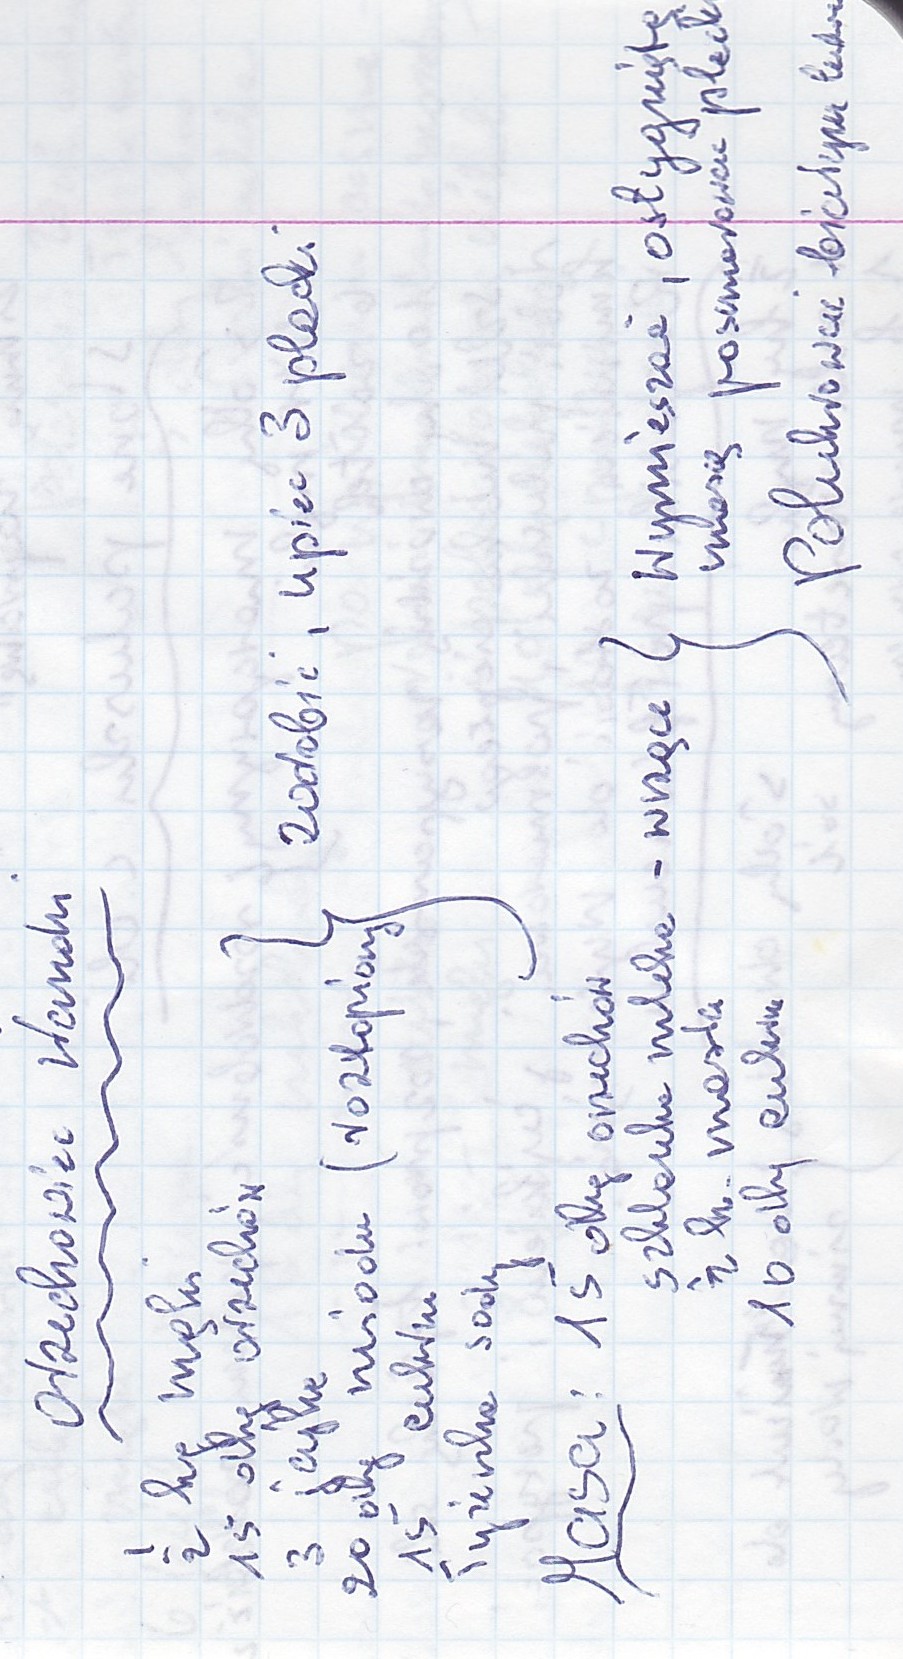 Orzechowiec Wandzi
1/2 kg mąki
15 dkg orzechów
3 jajka
20 dkg miodu (roztopiony
15 cukru
łyżeczka sody
zarobić, upiec 3 placki
Masa: 15 dkg orzechów
szklanka mleka - wrzące
1/2 k. masła
10 dkg cukru
Wymieszać, ostygniętą
masą posmarować placki
Polukrować białym